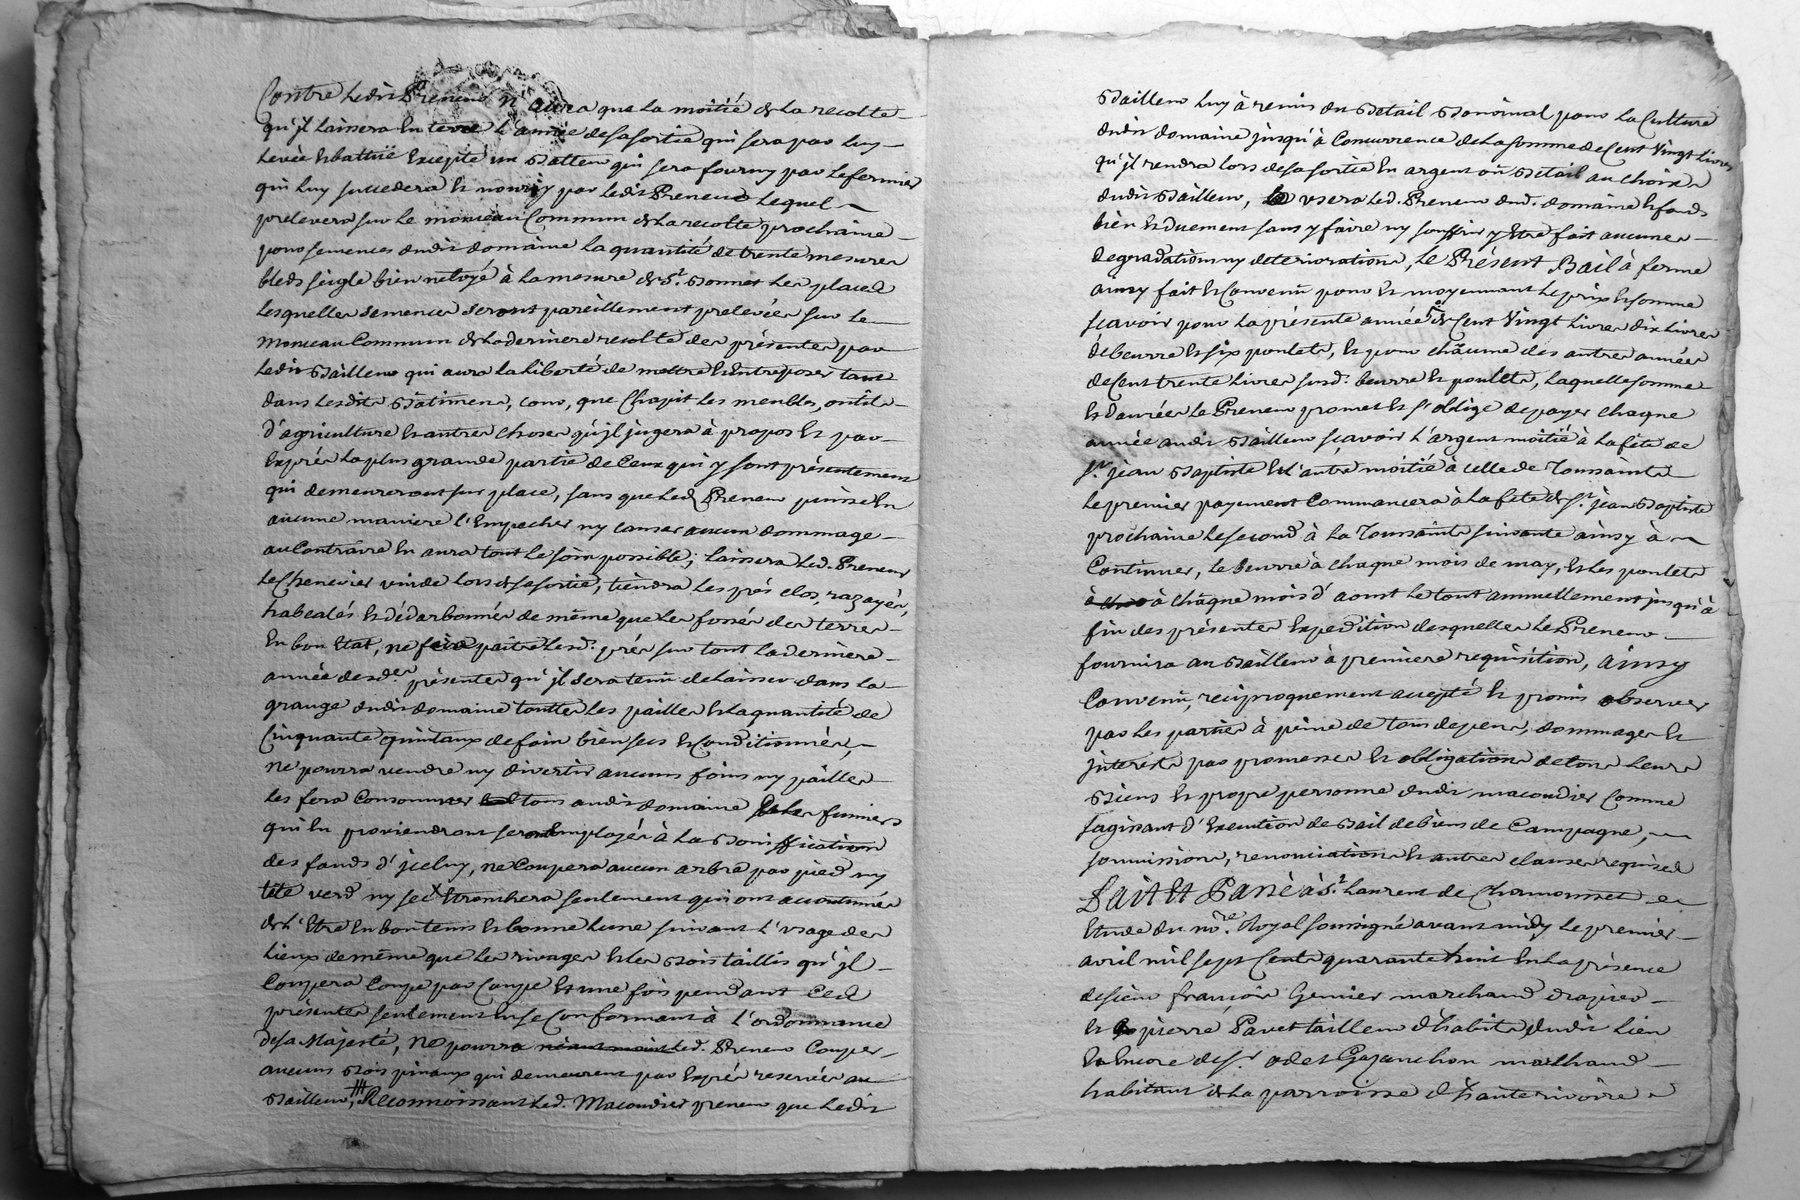 Contre ledit Preneur n'aura que la moitié de la recolte
qu'jl laissera En terre l'année de sa sortie qui sera par luy
Levée Et battüe Excepté un Batteur qui sera fourny par le fermier
qui luy succedera Et nourry par ledit Preneur Lequel
prelevera sur le monceau Commun de la recolte prochaine
pour semences dudit domaine la quantité de trente mesures
bleds seigle bien netoyé à la mesure de St. Bonnet les places
Lesquelles semences seront pareillement prelevées sur le
monceau Commun de la derniere recolte des présentes par
ledit Bailleur qui aura la liberté de mettre Et Entreposer tant
dans lesdits Bâtimens, cour, que Chapit les meubles, outils
d'agriculture Et autres choses qu'jl jugera à propos Et par
Exprés la plus grande partie de Ceux qui y sont présentement
qui demeureront sur place, sans que led. Preneur puisse En
aucune maniere l'Empecher ny causer aucun dommage
au Contraire En aura tout le soin possible; laissera led. Preneur
le Chenevier vuide lors de sa sortie, tiendra les prés clos, razayés,
habealés Et dédarbonnés de même que les fossés des terres
En bon Etat, ne fera paitre lesd. prés sur tout la derniere
année desdes présentes qu'jl sera tenû de laisser dans la
grange dudit domaine toutes les pailles Et la quantité de
Cinquante quintaux de foin bien secs Et Conditionnés,
ne pourra vendre ny divertir aucuns foins ny pailles
les fera Consommer tous audit domaine Et les fumiers
qui En proviendront seront Employés à la Boniffication
des fonds d'jceluy, ne Coupera aucun arbre par pied ny
tête verd ny sec Etronchera seulement qui ont accoutumés
de l'Etre En bon tems Et bonne lune suivant l'usage des
Lieux de même que les rivages Et les Bois taillis qu'jl
Coupera Coupe par Coupe Et une fois pendant Ced
présentes seulement En se Conformant à l'ordonnance
de sa Majesté, ne pourra néantmoins led. Preneur Couper
aucuns Bois pinaux qui demeurent par Exprés reservés au
Bailleur, Reconnoissant led. Macoudier preneur que ledit
Bailleur luy à remis du Bétail Bovinal pour la Culture
dudit domaine jusqu'à Concurrence de la somme de Cent Vingt livres
qu'jl rendra lors de sa sortie En argent oû Bétail au choix
dudit Bailleur, usera led. Preneur dud. domaine Et fonds
bien Et duement sans y faire ny souffrir y Etre fait aucunes
degradations ny deteriorations, Le Présent Bail à ferme
ainsy fait Et Convenû pour Et moyennant le prix Et somme
sçavoir pour la présente année de Cent Vingt livres dix livres
de beurre Et six poulets, Et pour châcune des autres années
de Cent trente livres susd. beurre Et poulets, laquelle somme
Et danrées le Preneur promet Et s'oblige de payer chaque
année audit Bailleur sçavoir l'argent moitié à la fête de
St. jean Baptiste Et l'autre moitié à celle de Toussaint
le premier payement Commancera à la fete de St. jean Baptiste
prochaine le second à la Toussaints suivante ainsy à
Continuer, le beurre à chaque mois de may, Et les poulets
à châque mois d'aoust le tout annuellement jusqu'à
fin des présentes Expedition desquelles le Preneur
fournira au Bailleur à premiere requisition, ainsy
Convenû, reciproquement accepté Et promis observer
par les parties à peine de tous depens, dommages Et
jnterests par promesses Et obligations de tous leurs
Biens Et propre personne dudit macoudier Comme
sagissant d'Execution de Bail de biens de Campagne,
soumissions, renonciations Et autres clauses requises
Fait Et Passé à St. Laurent de Chamousset
Etude du nore. Royal soussigné avant midy le premier
avril mil sept Cents quarante huit En la présence
de sieur françois Genier marchand drapier
Et pierre Pavet tailleur d'habits dudit lieu
Et Encore de sr. odet Gajanchon marchand
habitant de la parroisse d'hauterivoire